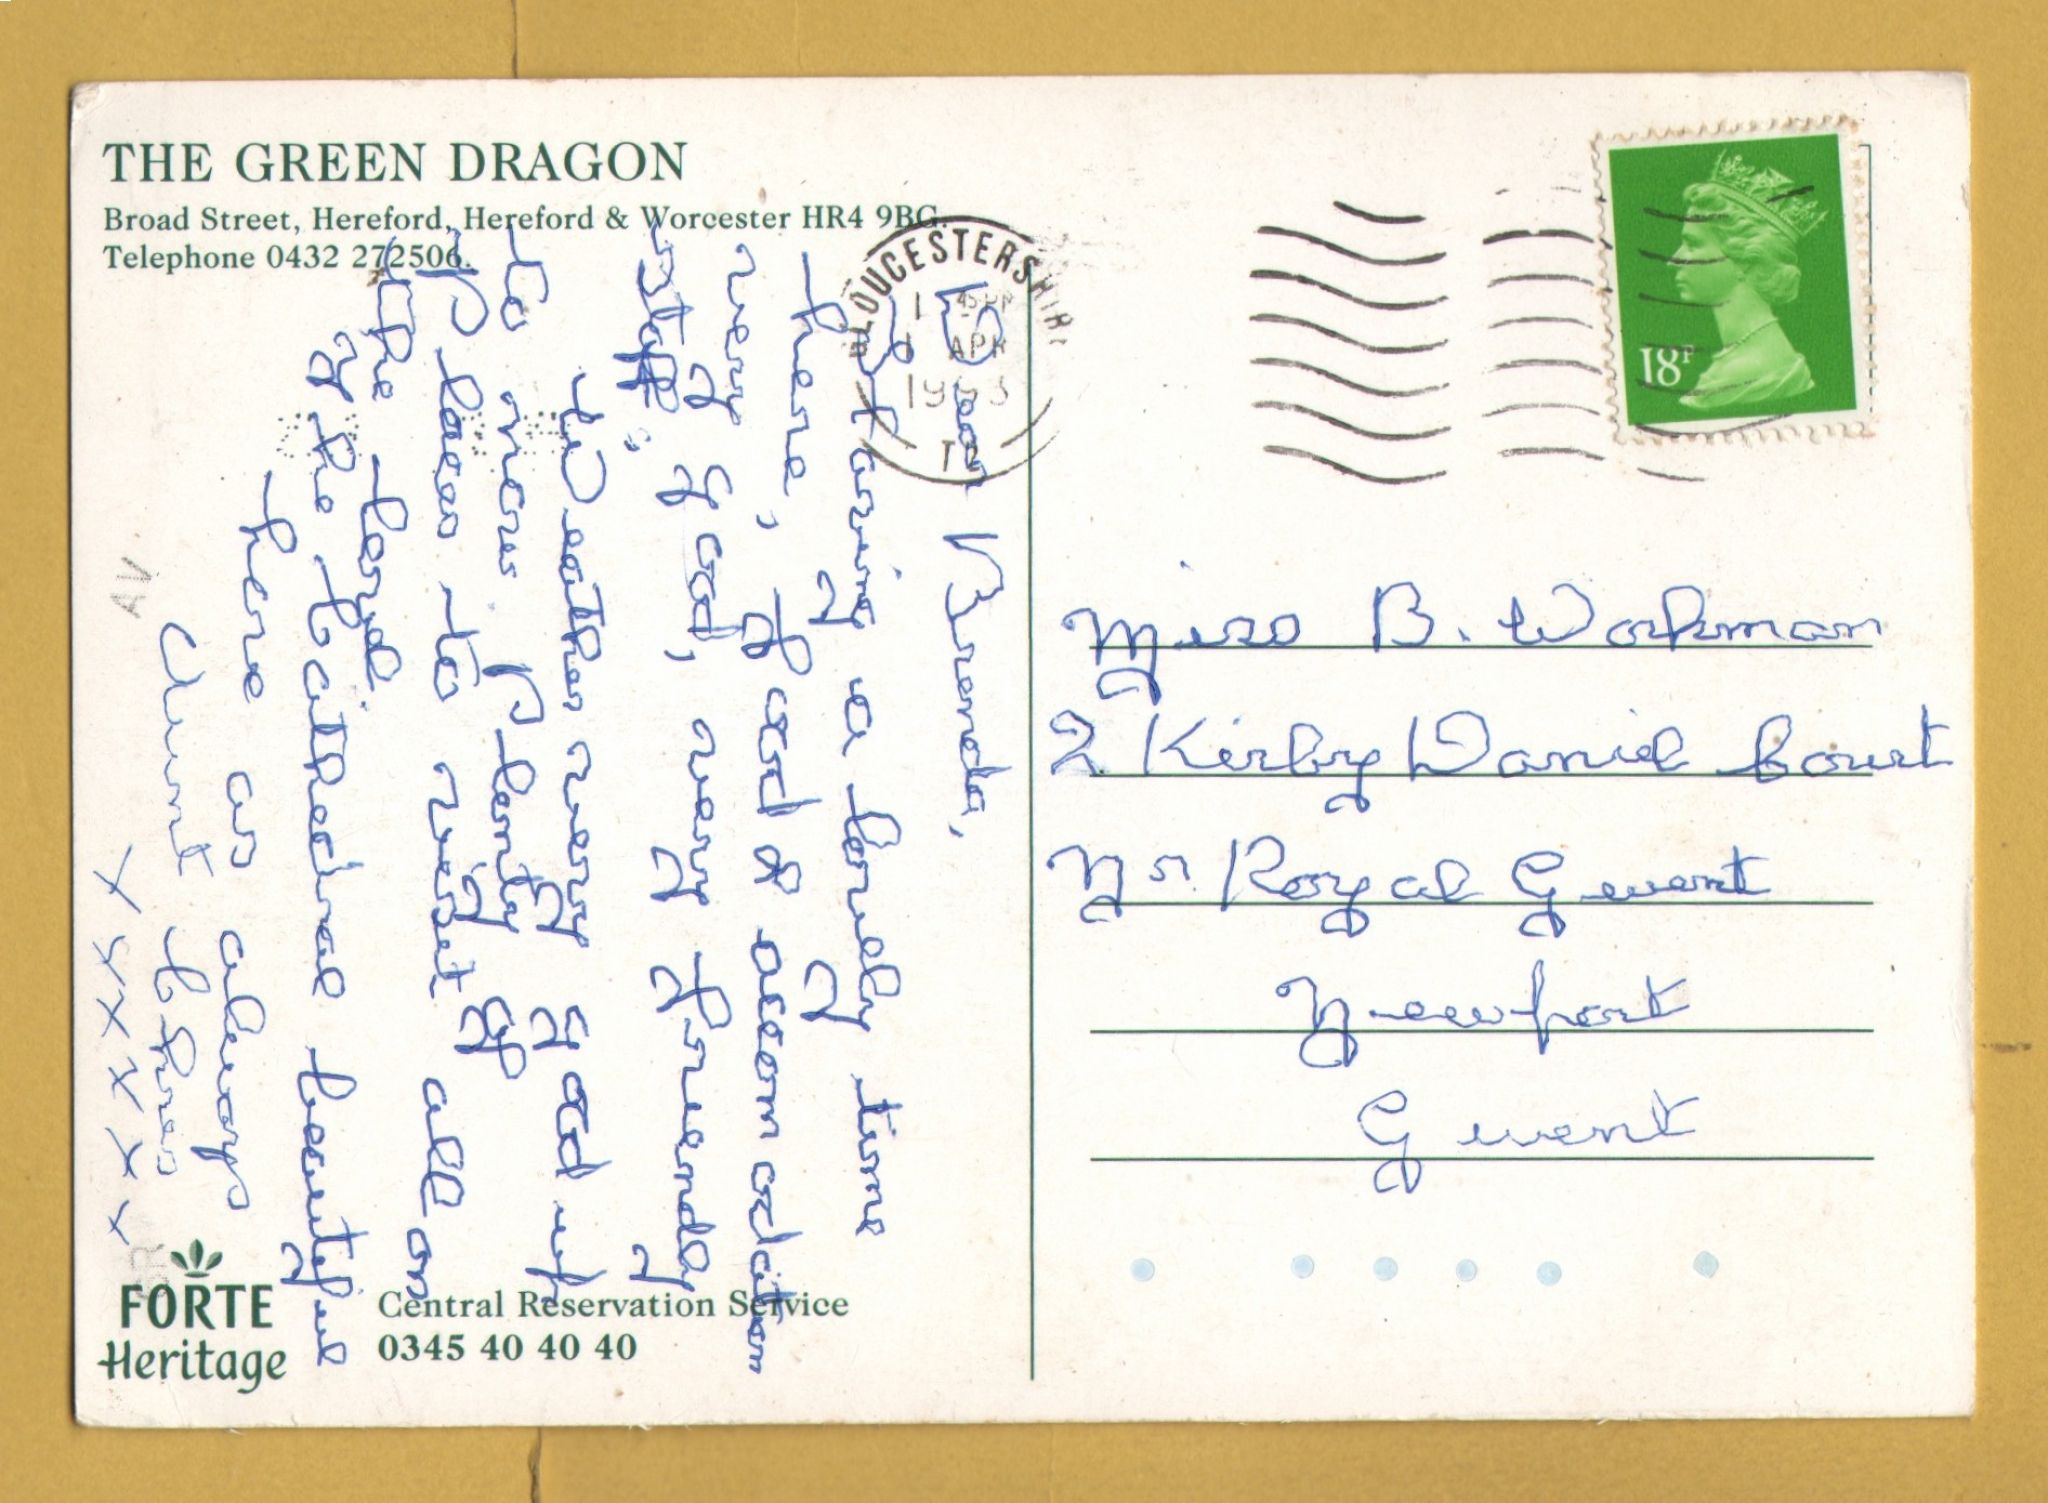 THE GREEN DRAGON
Broad Street, Hereford, Hereford & Worcester HR4 9BG.
Telephone 0432 272506.
GLOUCESTERSHIRE
1 45PM
1 APR
1993
T2
18P
Dear Brenda,
Having a lovely time
here, food & accomodation
very good, very friendly
staff,
Weather very good up
to now Plenty of
places to visit all on
the level
the Cathedral beautiful
here as always
Aunt Else
x x x x x x x
Miss B. Workman
2 Kirby Daniel Court
Nr. Royal Gwent
Newport
Gwent
FORTE
Heritage
Central Reservation Service
0345 40 40 40